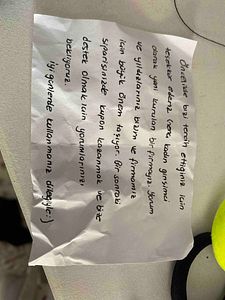 Öncelikle bizi tercih ettiğiniz için
teşekkür ederiz. İki kadın girişimci
olarak yeni kurulan bir firmayız. Yorum
ve yıldızlarınız bizim ve firmamız
için büyük önem taşıyor. Bir sonraki
siparişinizde kupon kazanmak ve bize
destek olmak için yorumlarınızı
bekliyoruz.
İyi günlerde kullanmanız dileğiyle :)